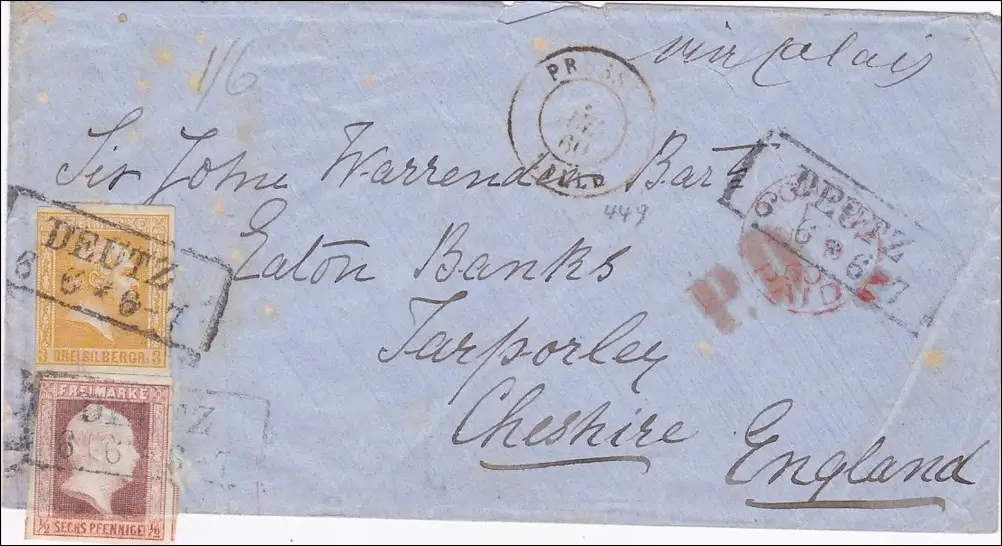 1/6
via Calais
PRUSSE
Sir John Warrender Bart
449
DEUTZ
6 6 * 6-7
3 DREI SILBERGR. 3
Eaton Banks
DEUTZ
6 6 6-7
P.
PAID
Tarporley
FREIMARKE
DEUTZ
6 6
½ SECHS PFENNIGE ½
Cheshire
England